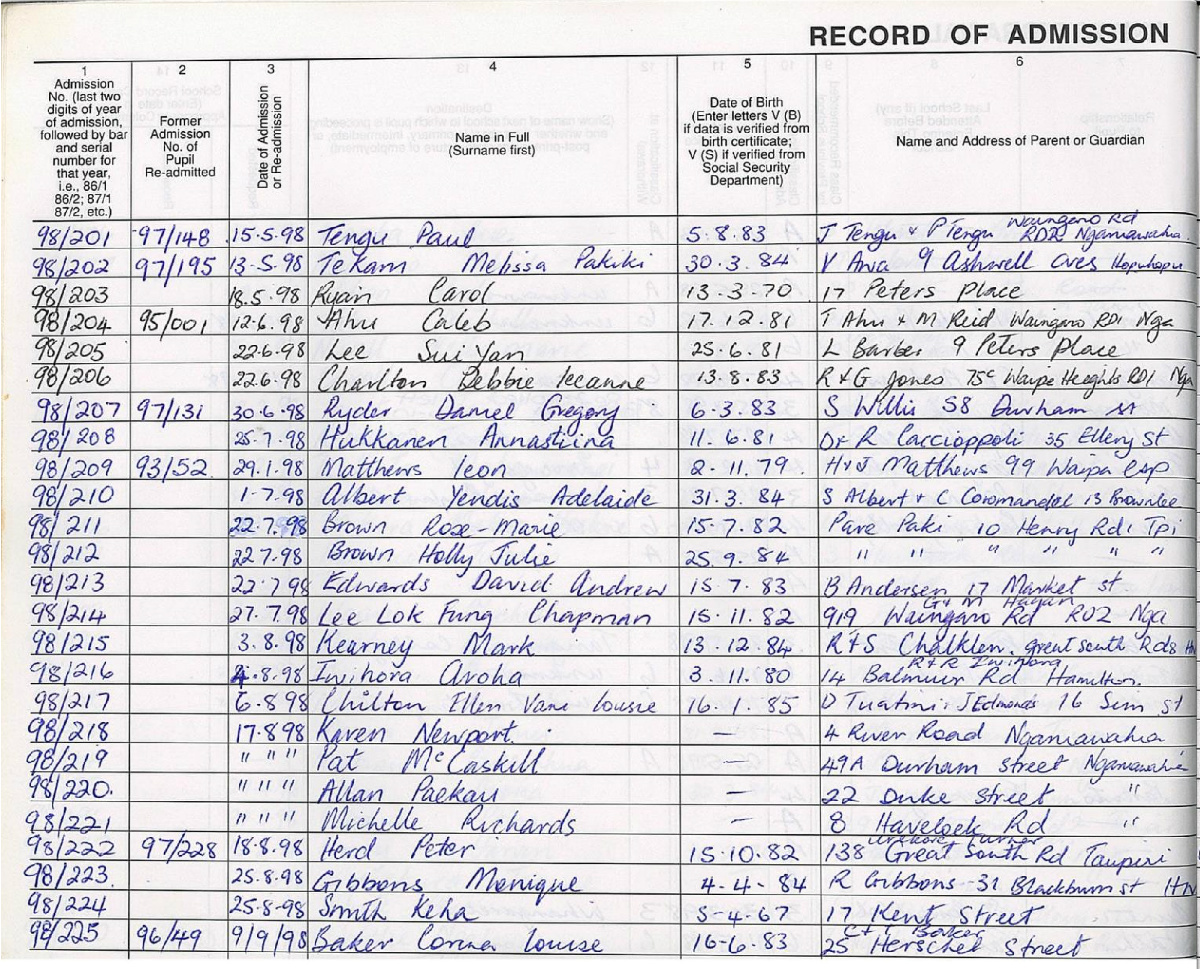 RECORD OF ADMISSION
1 2 3 4 5 6
Admission No. (last two digits of year of admission, followed by bar and serial number for that year, i.e., 86/1 86/2; 87/1 87/2, etc.)
Former Admission No. of Pupil Re-admitted
Date of Admission or Re-admission
Name in Full (Surname first)
Date of Birth (Enter letters V (B) if data is verified from birth certificate; V (S) if verified from Social Security Department)
Name and Address of Parent or Guardian
98/201 97/148 15.5.98 Tengu Paul 5.8.83 J Tengu & P Tengu Waingaro Rd RD2 Ngaruawahia
98/202 97/195 13-5.98 TeKam Melissa Pakiki 30.3.84 V Awa 9 Ashwell Cres Hopuhopu
98/203 18.5.98 Ryan Carol 13-3-70 17 Peters Place
98/204 95/001 12-6.98 Ahu Caleb 17.12.81 T Ahu & M Reid Waingaro RD1 Nga
98/205 22-6.98 Lee Sui Yan 25.6.81 L Barber 9 Peters Place
98/206 22.6.98 Charlton Debbie Leanne 13.8.83 R & G Jones 75c Waipa Heights RD1 Nga
98/207 97/131 30-6-98 Ryder Daniel Gregory 6-3.83 S Willis 58 Durham st
98/208 25-7.98 Hukkanen Annastiina 11.6.81 Dr R Caccioppoli 35 Ellery St
98/209 93/52 29.1.98 Matthews Leon 2-11.79. H & J Matthews 99 Waipa Esp
98/210 1-7.98 Albert Yendis Adelaide 31.3.84 S Albert & C Coromandel 13 Brownlee
98/211 22.7.98 Brown Rose-Marie 15-7.82 Pare Paki 10 Henry Rd1 Tpi
98/212 22 7.98 Brown Holly Julie 25.9.84 " " " " " "
98/213 22.7 98 Edwards David Andrew 15.7.83 B Andersen 17 Market st.
98/214 27.7.98 Lee Lok Fung Chapman 15.11.82 G & M Hagan 919 Waingaro Rd RD2 Nga
98/215 3.8.98 Kearney Mark 13.12.84 R & S Chalklen. Great South Rd8 HN
98/216 4.8.98 Iwihora Aroha 3.11.80 R & R Iwihora 14 Balmuir Rd Hamilton.
98/217 6.8 98 Chilton Ellen Vane Lousie 16.1.85 D Tuatini J Edmonds 16 Sim st
98/218 17.8 98 Karen Newport. — 4 River Road Ngaruawahia
98/219 " " " Pat McCaskill — 49A Durham Street Ngaruawahia
98/220. " " " Allan Paekau — 22 Duke Street "
98/221 " " " Michelle Richards — 8 Havelock Rd "
98/222 97/228 18.8.98 Herd Peter 15.10.82 Turner 138 Great South Rd Taupiri
98/223. 25.8.98 Gibbons Monique 4-4-84 R Gibbons -31 Blackburn st HN
98/224 25.8-98 Smith Keha 5-4-67 17 Kent Street
98/225 96/49 9/9/98 Baker Louise 16-6.83 Baker 25 Herschel Street